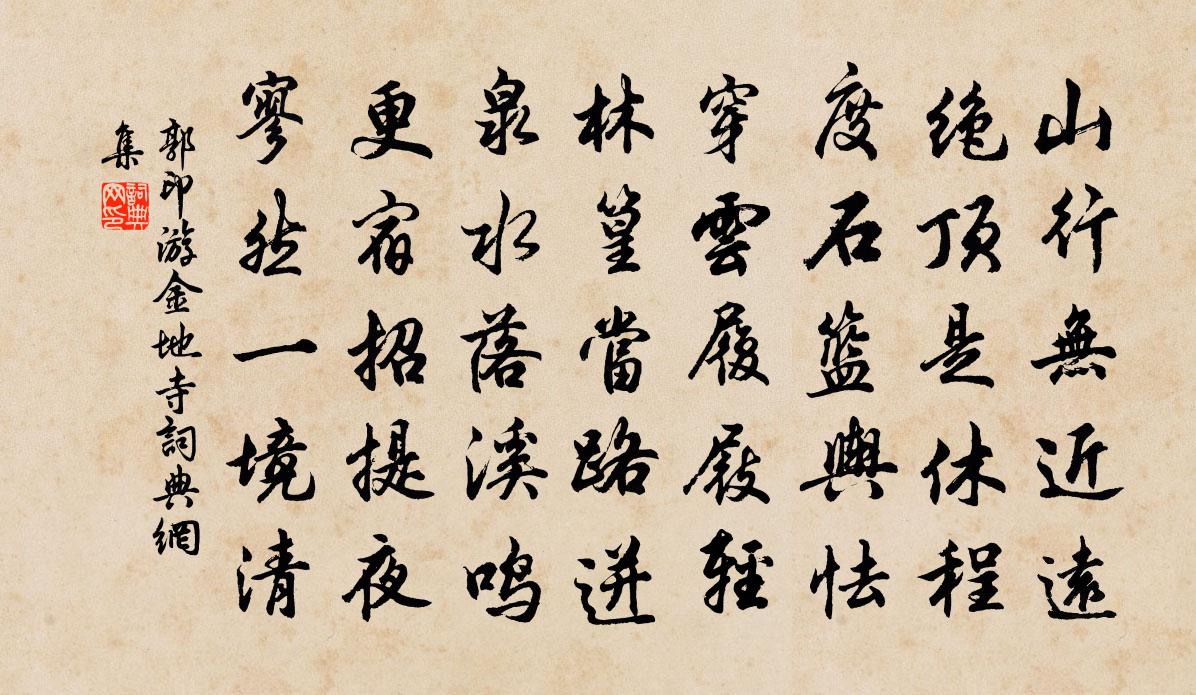 山行無近遠
絶頂是休程
度石籃輿怯
穿雲履屐輕
林篁當路迸
泉水落溪鳴
更宿招提夜
寥然一境清
郭印游金地寺詞典網
集
詞典
网印